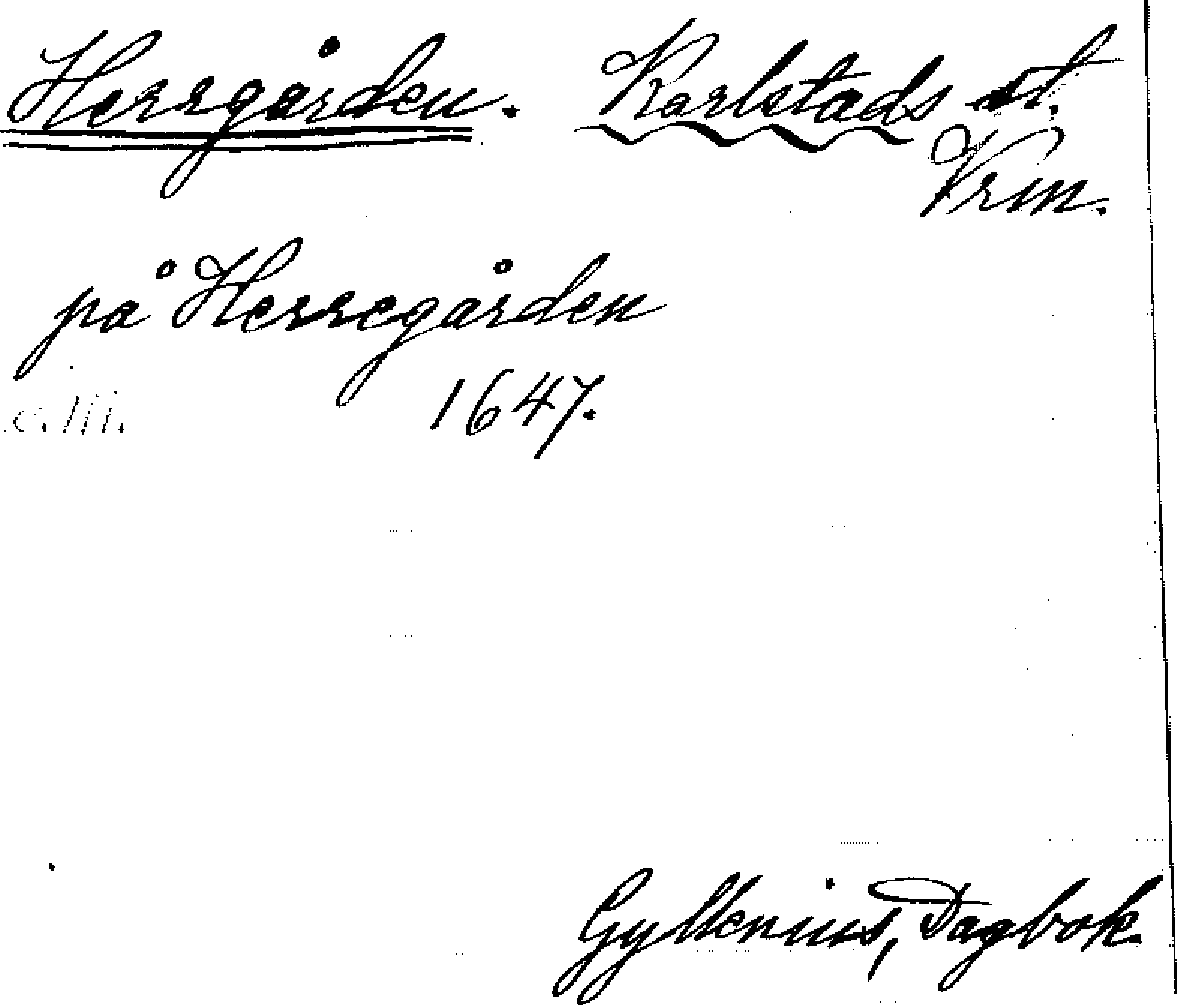 Herrgården. Karlstads st.
Vrm.
på Herregården
1647.
Gyllenius, Dagbok.